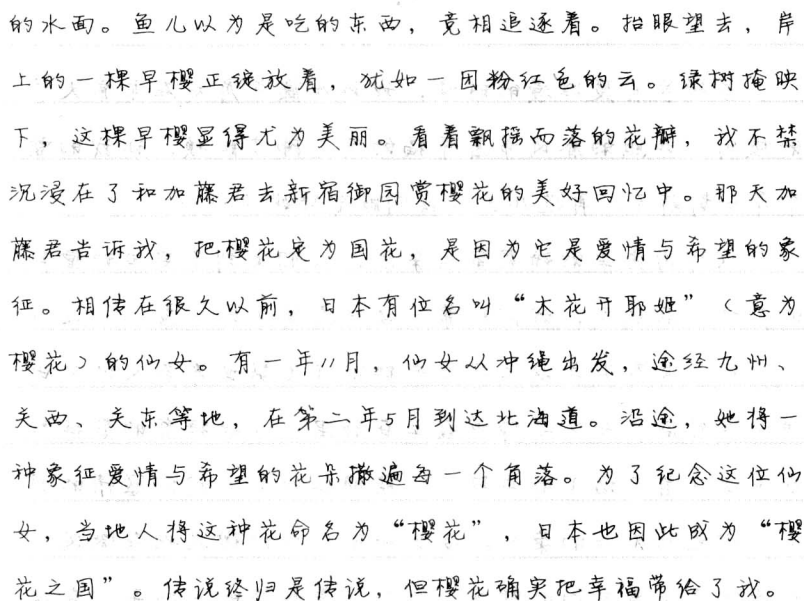 的水面。鱼儿以为是吃的东西，竞相追逐着。抬眼望去，岸
上的一棵早樱正绽放着，犹如一团粉红色的云。绿树掩映
下，这棵早樱显得尤为美丽。看着飘摇而落的花瓣，我不禁
沉浸在了和加藤君去新宿御园赏樱花的美好回忆中。那天加
藤君告诉我，把樱花定为国花，是因为它是爱情与希望的象
征。相传在很久以前，日本有位名叫“木花开耶姬”（意为
樱花）的仙女。有一年11月，仙女从冲绳出发，途经九州、
关西、关东等地，在第二年5月到达北海道。沿途，她将一
种象征爱情与希望的花朵撒遍每一个角落。为了纪念这位仙
女，当地人将这种花命名为“樱花”，日本也因此成为“樱
花之国”。传说终归是传说，但樱花确实把幸福带给了我。